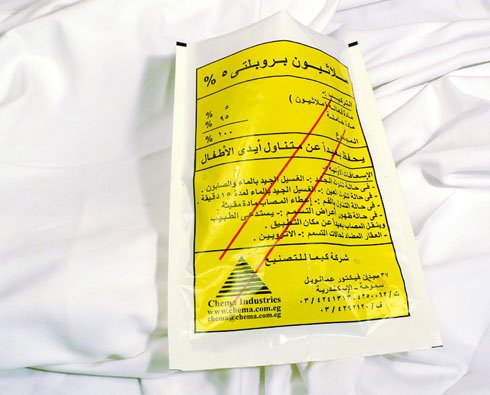 ملاثيون بروبلتى ٥ %
التركيب :-
مادة فعالة ( ملاثيون ) ٥ %
مادة حاملة ٩٥ %
المجموع ١٠٠ %
يحفظ بعيداً عن متناول أيدى الأطفال
الإسعافات الأولية :-
- فى حالة تلوث الجلد :- الغسيل الجيد بالماء والصابون .
- فى حالة تلوث العين :- الغسيل الجيد بالماء لمدة ١٥ دقيقة .
- فى حالة التلوث بالفم :- إعطاء المصاب مادة مقيئة .
- فى حالة ظهور أعراض التسمم :- يستدعى الطبيب
وينقل المصاب بعيداً عن مكان التطبيق .
- العقار المضاد لحالات التسمم :- الأتروبين .
شركة كيما للتصنيع
٣٧ ميدان فيكتور عمانويل
سموحة - الإسكندرية
ت / ٤٢٥٠٠٦٢ - ٠٣ / ٤٢٤١٣١
ف / ٤٢٩٢١٢٠ / ٠٣
Chema Industries
www.chema.com.eg
chema@chema.com.eg